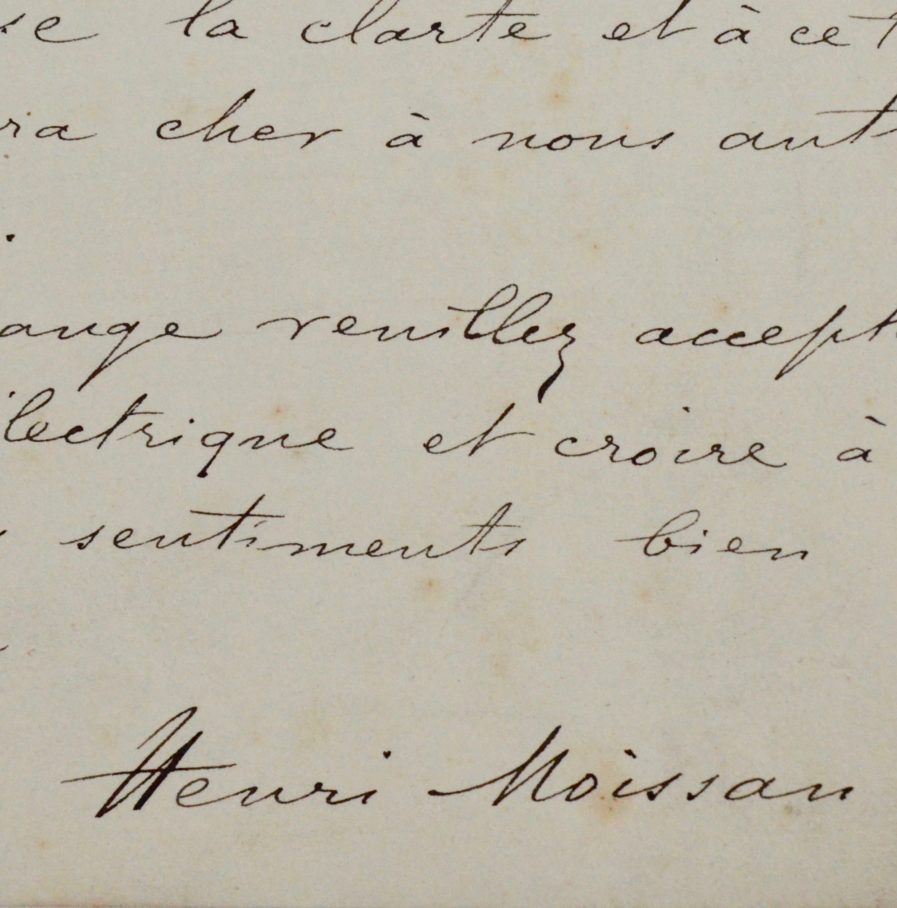 se la clarté et à cet
ra cher à nous aut
.
ange veuillez accept
électrique et croire à
sentiments bien
Henri Moissan